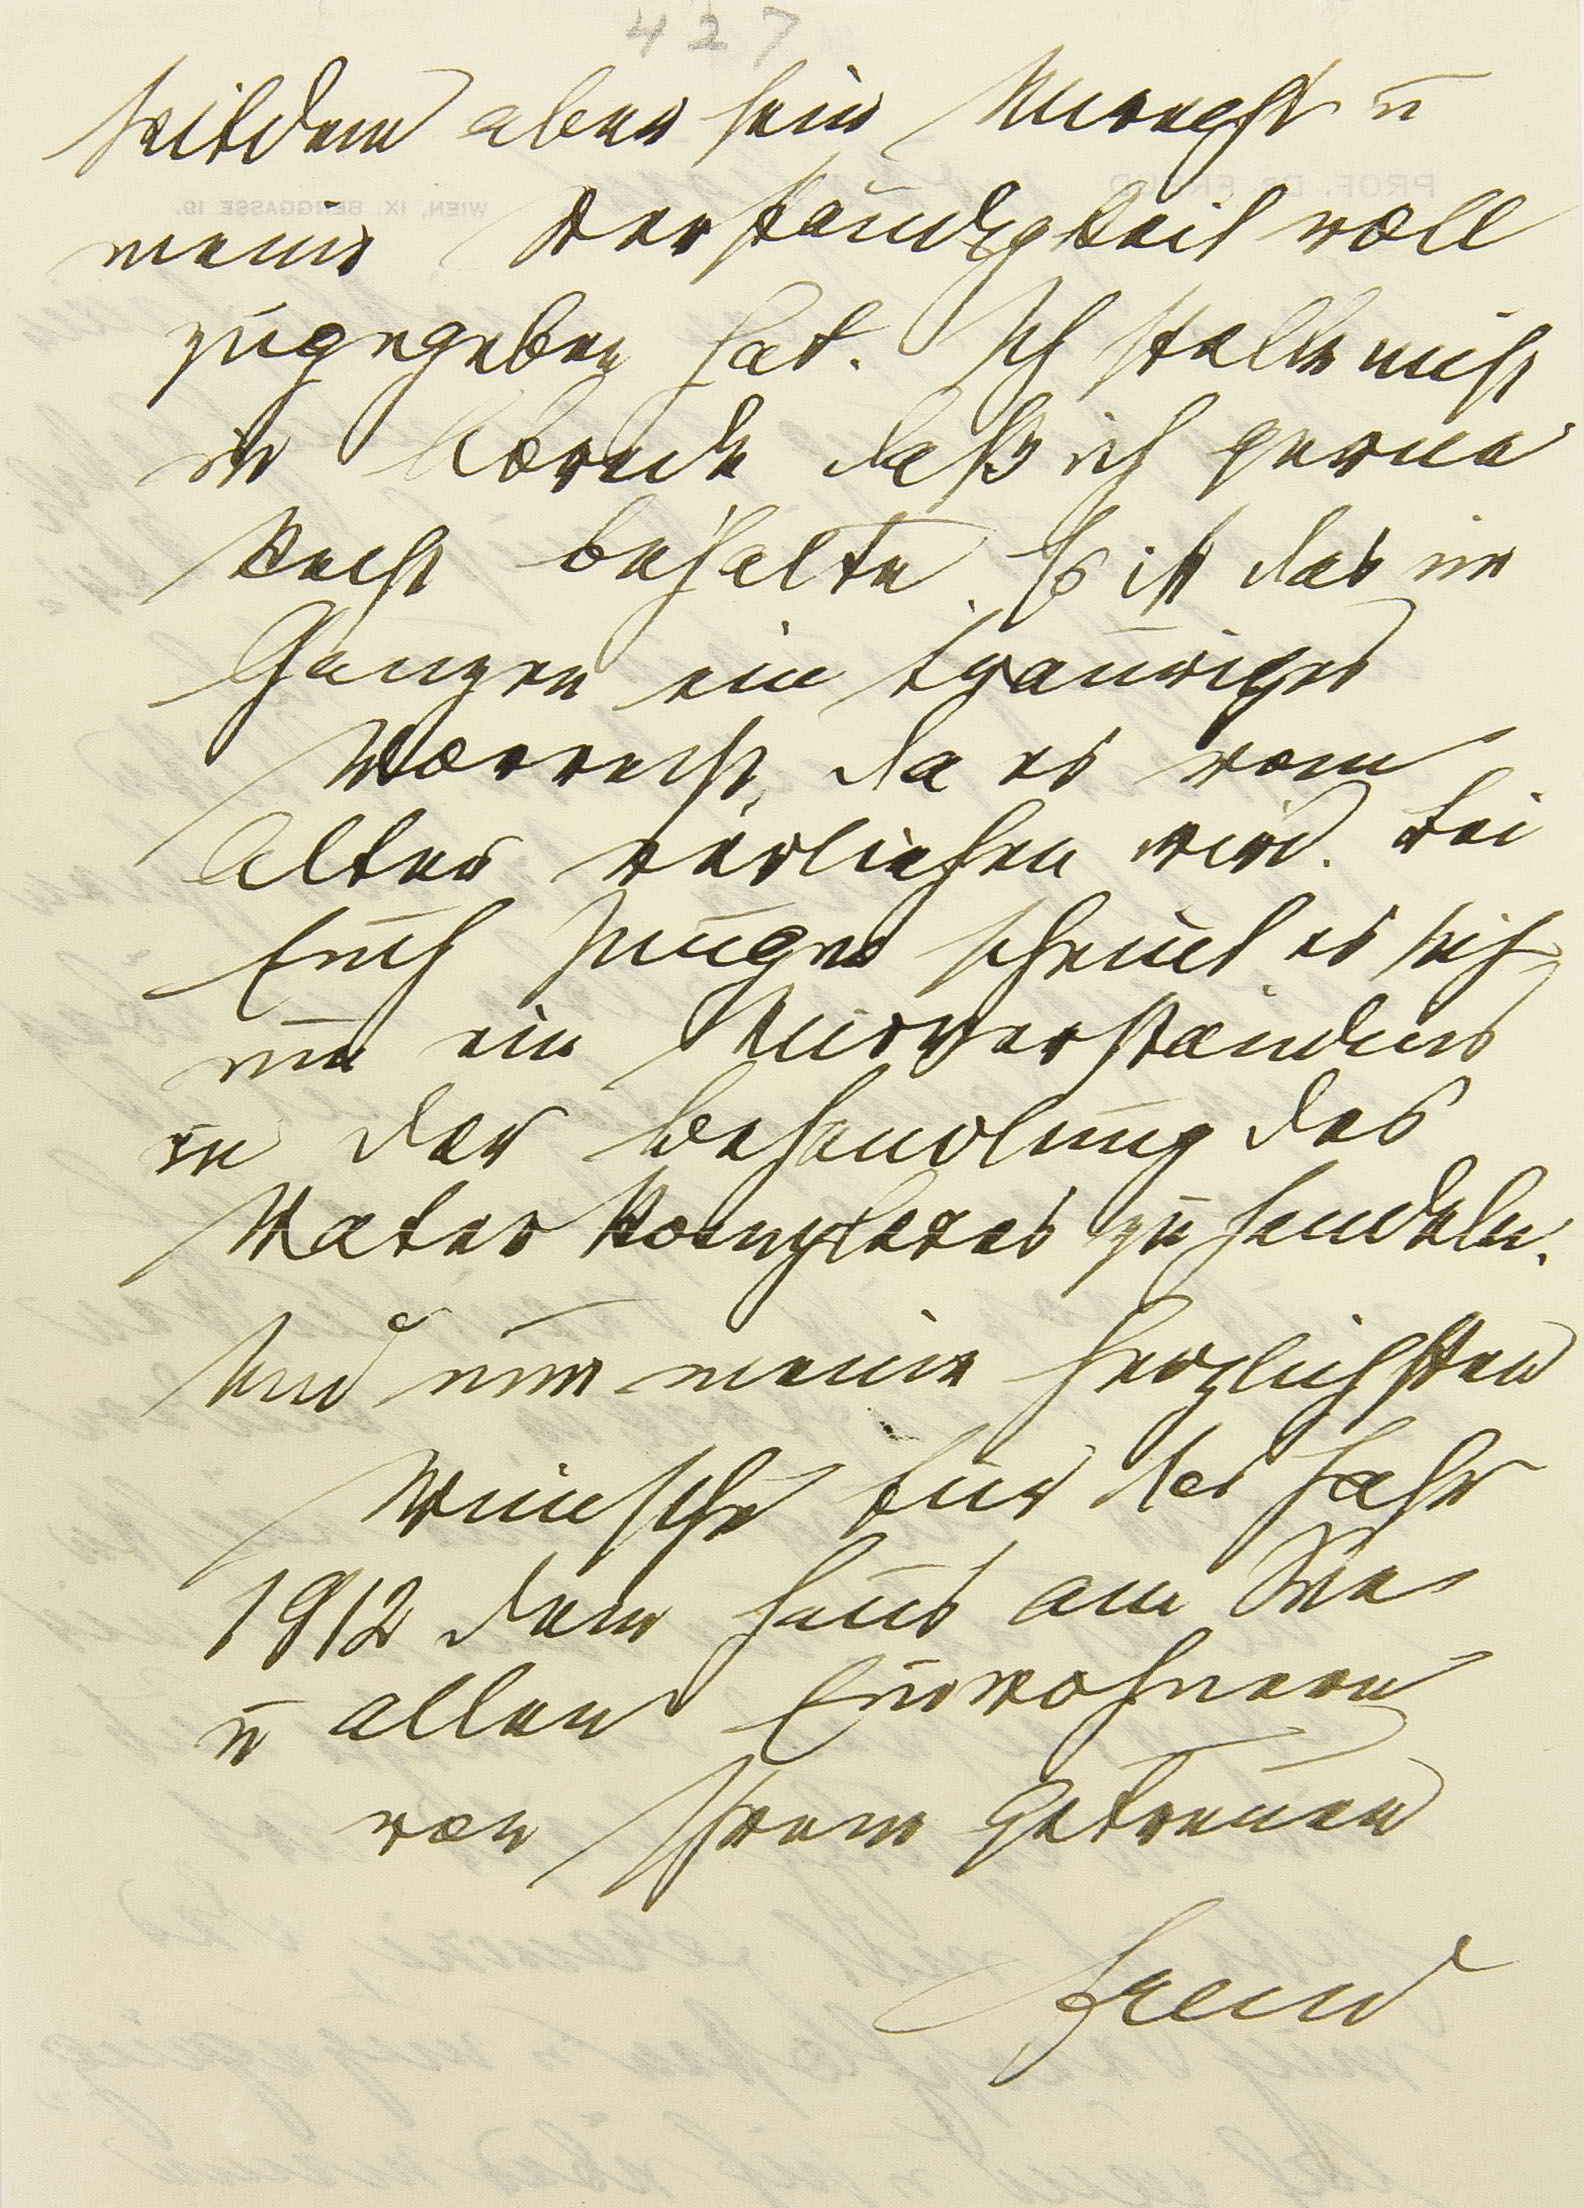 427
seitdem aber sein Unrecht u
meine Verständigkeit voll
zugegeben hat. Ich stelle nicht
in Abrede daß ich gerne
Recht behalte. Es ist das im
Ganzen ein trauriges
Vorrecht, da es vom
Alter verliehen wird. Bei
Euch Jungen scheint es sich
um ein Unverständnis
in der Behandlung des
Vaterkomplexes zu handeln.
Und nun meine herzlichsten
Wünsche für das Jahr
1912 dem Haus am See
u allen Einwohnern
von Ihrem getreuen
Freud
PROF. DR. FREUD
WIEN, IX. BERGGASSE 19.